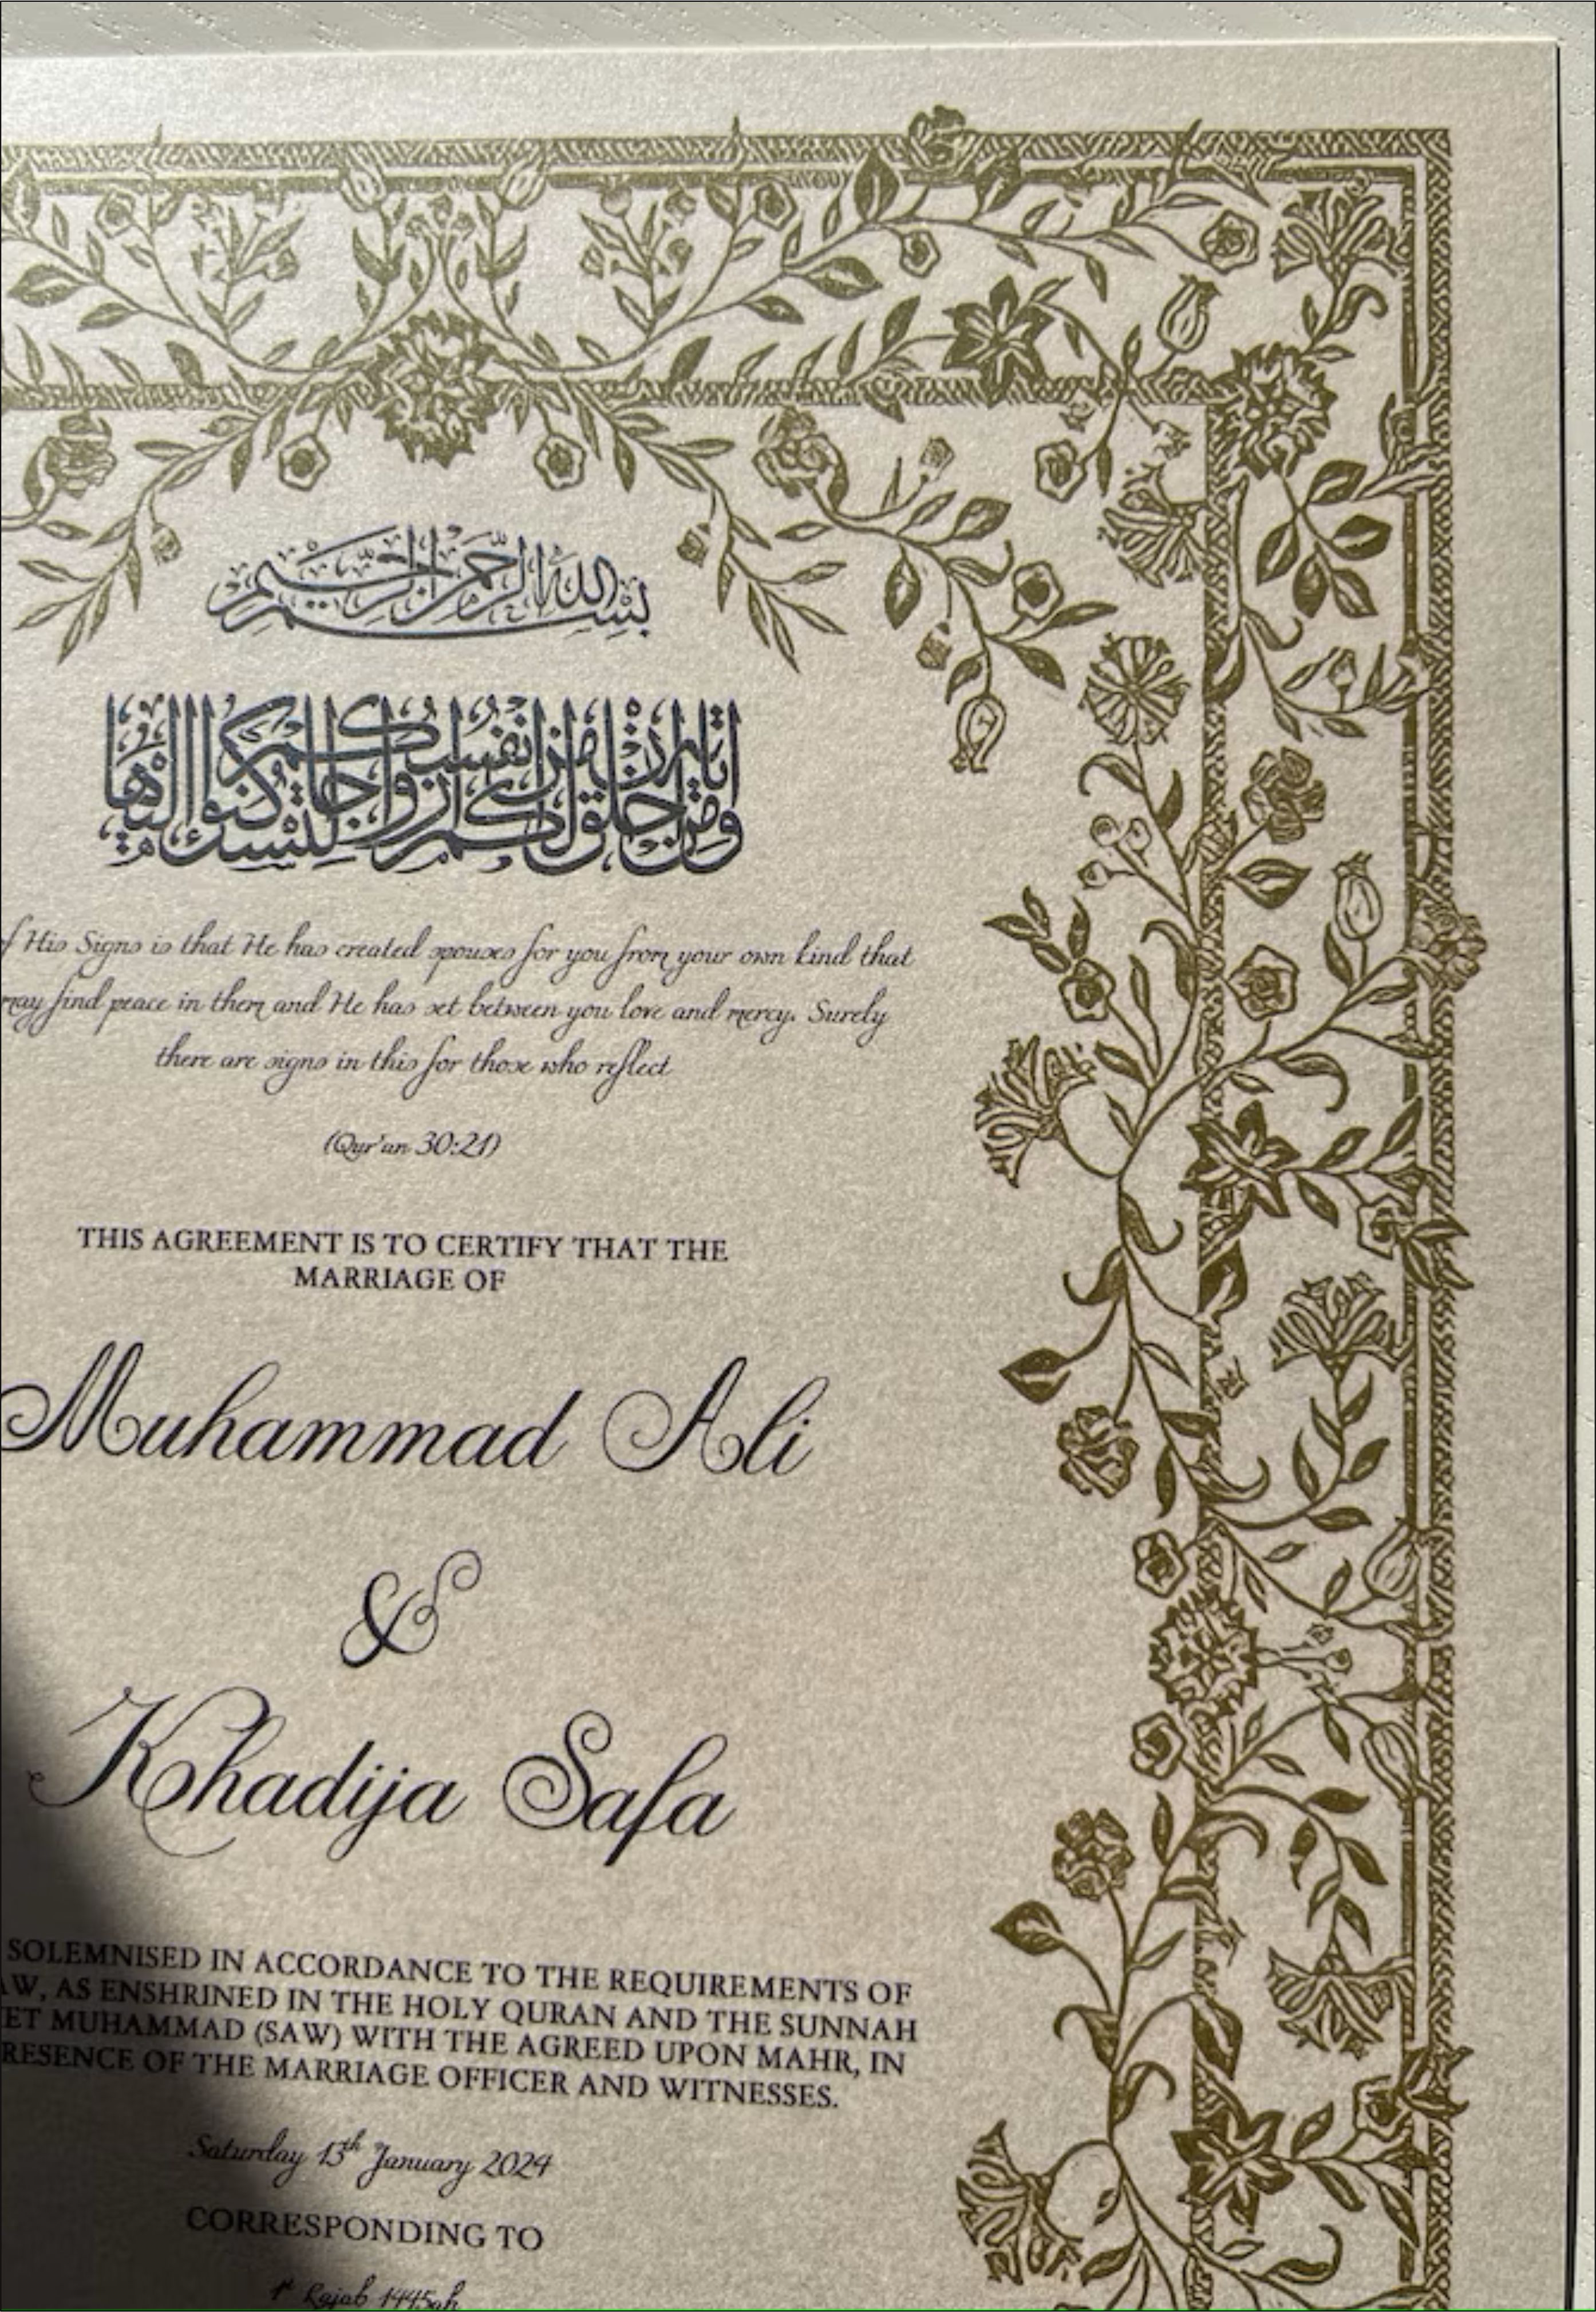 بسم الله الرحمن الرحيم
ومن آياته أن خلق لكم من أنفسكم أزواجا لتسكنوا إليها
His Signs is that He has created spouses for you from your own kind that
may find peace in them and He has set between you love and mercy. Surely
there are signs in this for those who reflect
(Qur'an 30:21)
THIS AGREEMENT IS TO CERTIFY THAT THE
MARRIAGE OF
Muhammad Ali
&
Khadija Safa
SOLEMNISED IN ACCORDANCE TO THE REQUIREMENTS OF
AW, AS ENSHRINED IN THE HOLY QURAN AND THE SUNNAH
ET MUHAMMAD (SAW) WITH THE AGREED UPON MAHR, IN
RESENCE OF THE MARRIAGE OFFICER AND WITNESSES.
Saturday 13th January 2024
CORRESPONDING TO
1st Rajab 1445ah